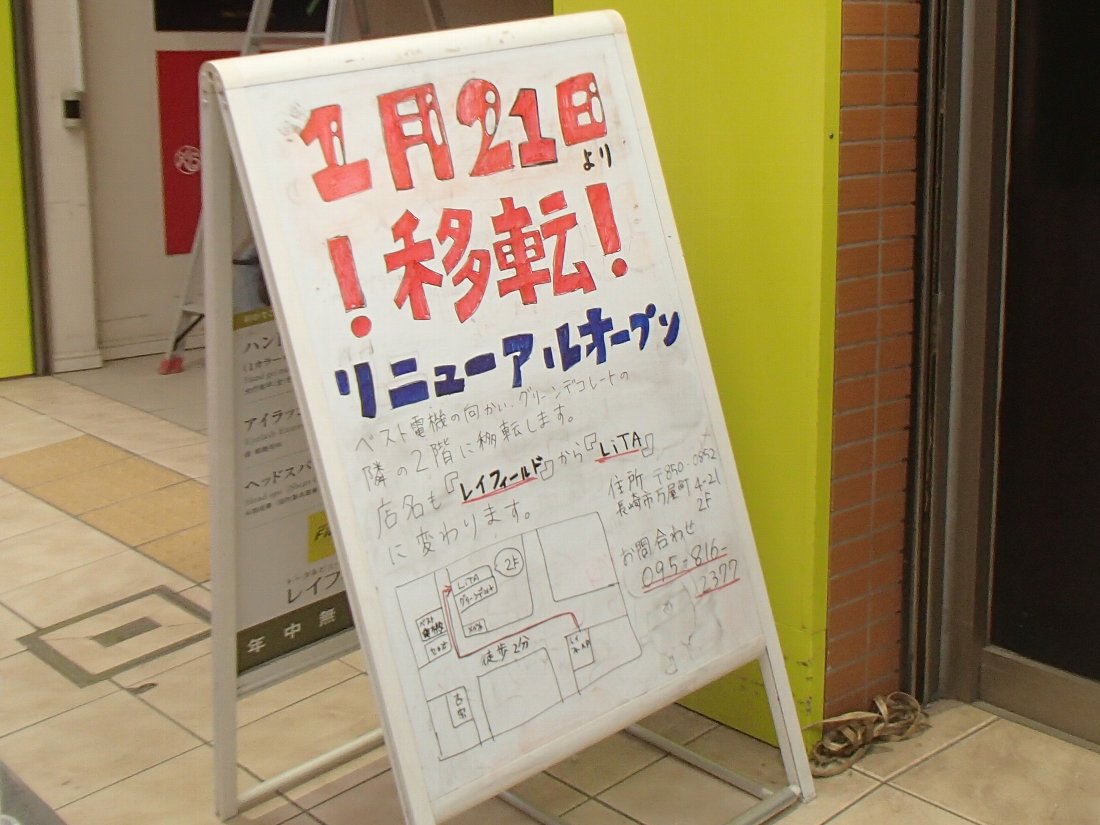 1月21日より
!移転!
リニューアルオープン
ベスト電機の向かい、グリーンデコレートの
隣の2階に移転します。
店名も『レイフィールド』から『LiTA』
に変わります。
住所 〒850-0852
長崎市万屋町4-21
2F
お問合わせ
095-816-
2377
2F
LiTA
グリーンデコレート
ベスト
電機
徒歩2分
レイ
ハン
アイラッシ
ヘッドスパ
レイフ
年中無